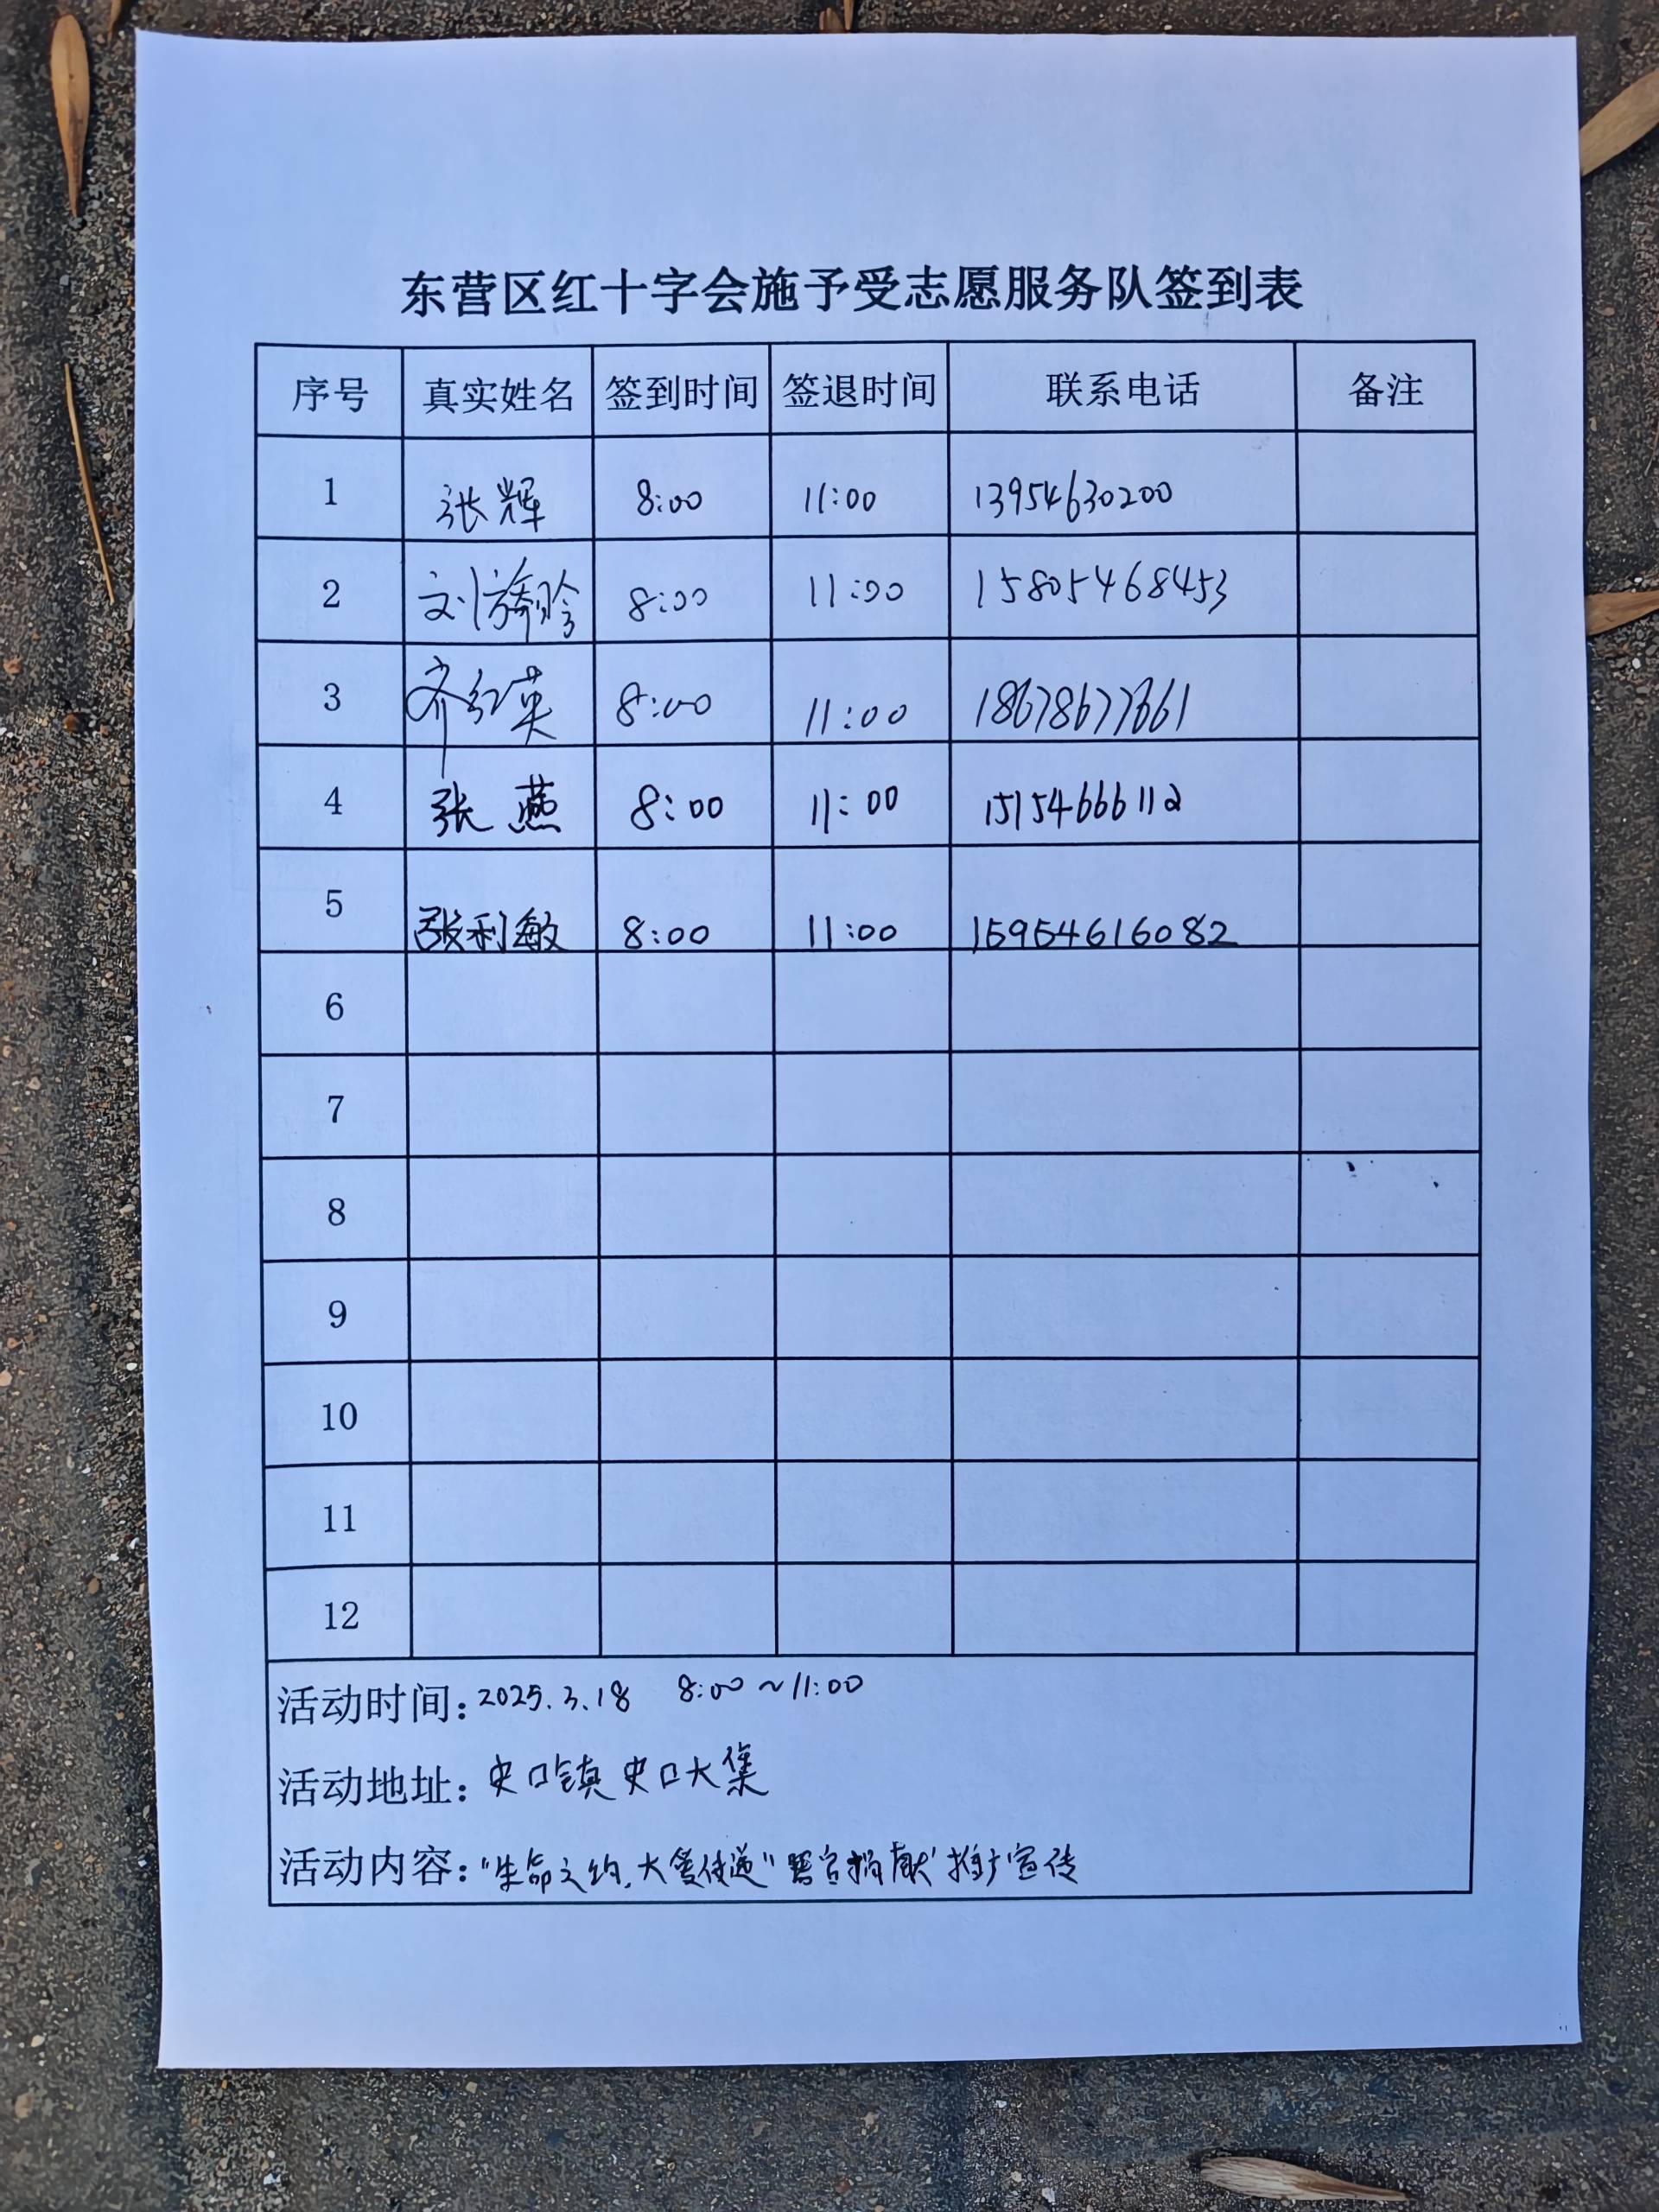 东营区红十字会施予受志愿服务队签到表
序号 真实姓名 签到时间 签退时间 联系电话 备注
1 张辉 8:00 11:00 13954630200
2 刘 8:00 11:00 15805468453
3 齐红英 8:00 11:00 18678677661
4 张燕 8:00 11:00 15154666112
5 张利敏 8:00 11:00 15954616082
6
7
8
9
10
11
12
活动时间:2025.3.18 8:00~11:00
活动地址:史口镇史口大集
活动内容:"生命之约,大爱传递"器官捐献推广宣传